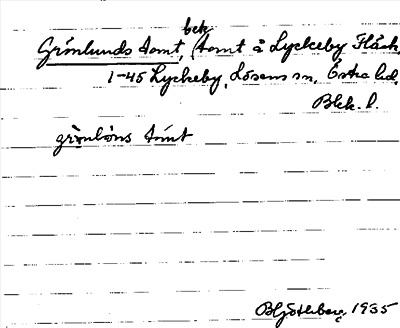 bek.
Grönlunds tomt, (tomt å Lyckeby Fläck
1-45 Lyckeby, Lösens sn, Östra hd.
Blek. l.
grònlùns tómt
B Hjöthberg, 1935